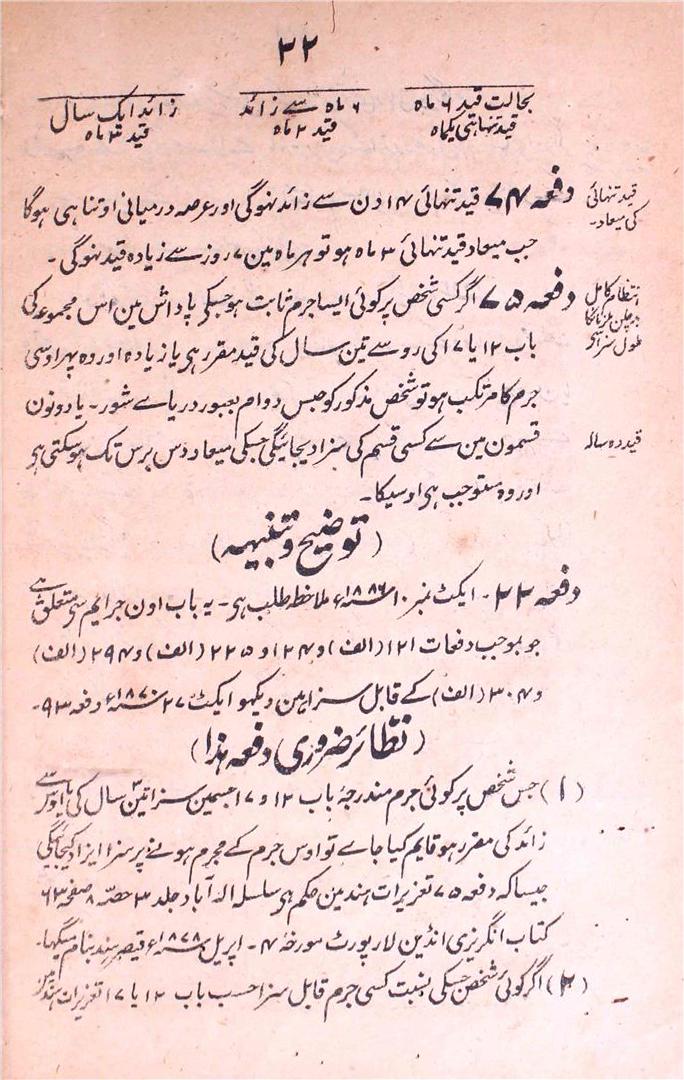 ۳۲
بحالت قید ۶ ماہ
قید تنہائی یکماہ
۶ ماہ سے زائد
قید ۲ ماہ
زائد ایک سال
قید ۳ ماہ
قید تنہائی
کی میعاد۔
دفعہ ۷۴ قید تنہائی ۱۴ دن سے زائد نہوگی اور عرصہ درمیانی اوتنا ہی ہوگا
جب میعاد قید تنہائی ۳ ماہ ہو تو ہر ماہ مین ۷ روز سے زیادہ قید نہوگی۔
دفعہ ۷۵ اگر کسی شخص پر کوئی ایسا جرم ثابت ہو جسکی پاداش مین اس مجموعہ کی
باب ۱۲ یا ۱۷ کی رو سے تین سال کی قید مقرر ہی یا زیادہ اور وہ پہر اوسی
جرم کا مرتکب ہو تو شخص مذکور کو حبس دوام بعبور دریاے شور۔ یا دونون
قید دہ سالہ
قسمون مین سے کسی قسم کی سزا دیجائیگی جسکی میعاد دس برس تک ہوسکتی ہی
اور وہ مستوجب ہی اوسیکا۔
(توضیح و تنبیہ)
دفعہ ۲۲۔ ایکٹ نمبر ۱۰ ۱۸۸۶ء ملاحظہ طلب ہی۔ یہ باب اون جرائم سی متعلق ہے
جو بموجب دفعات ۱۲۱ (الف) و ۱۲۴ و ۲۲۵ (الف) و ۲۹۴ (الف)
و ۳۰۴ (الف) کے قابل سزا ہین دیکھو ایکٹ ۲۷ ۱۸۷۰ء دفعہ ۹۳۔
(نظائر ضروری دفعہ ہذا)
(۱) جس شخص پر کوئی جرم مندرجۂ باب ۱۲ و ۱۷ جسمین سزا تین ۳ سال کی یا اوس سے
زائد کی مقرر ہو قایم کیا جاے تو اوس جرم کے مجرم ہونے پر سزا ایزاد کیجائیگی
جیسا کہ دفعہ ۷۵ تعزیرات ہند مین حکم ہی سلسلہ الہ آباد جلد ۳ حصہ ۸ صفحہ ۶۳
کتاب انگریزی انڈین لا رپورٹ مورخہ ۴۔ اپریل ۱۸۷۸ء قیصر ہند بنام میگہا۔
(۲) اگر کوئی شخص جسکی بنسبت کسی جرم قابل سزا حسب باب ۱۲ یا ۱۷ تعزیرات ہند مین